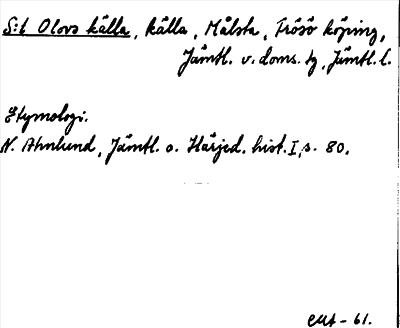 S:t Olovs källa, källa, Målsta, Frösö köping,
Jämtl. v. doms. tg, Jämtl. l.
Etymologi.
N. Ahnlund, Jämtl. o. Härjed. hist. I, s. 80.
- 61.